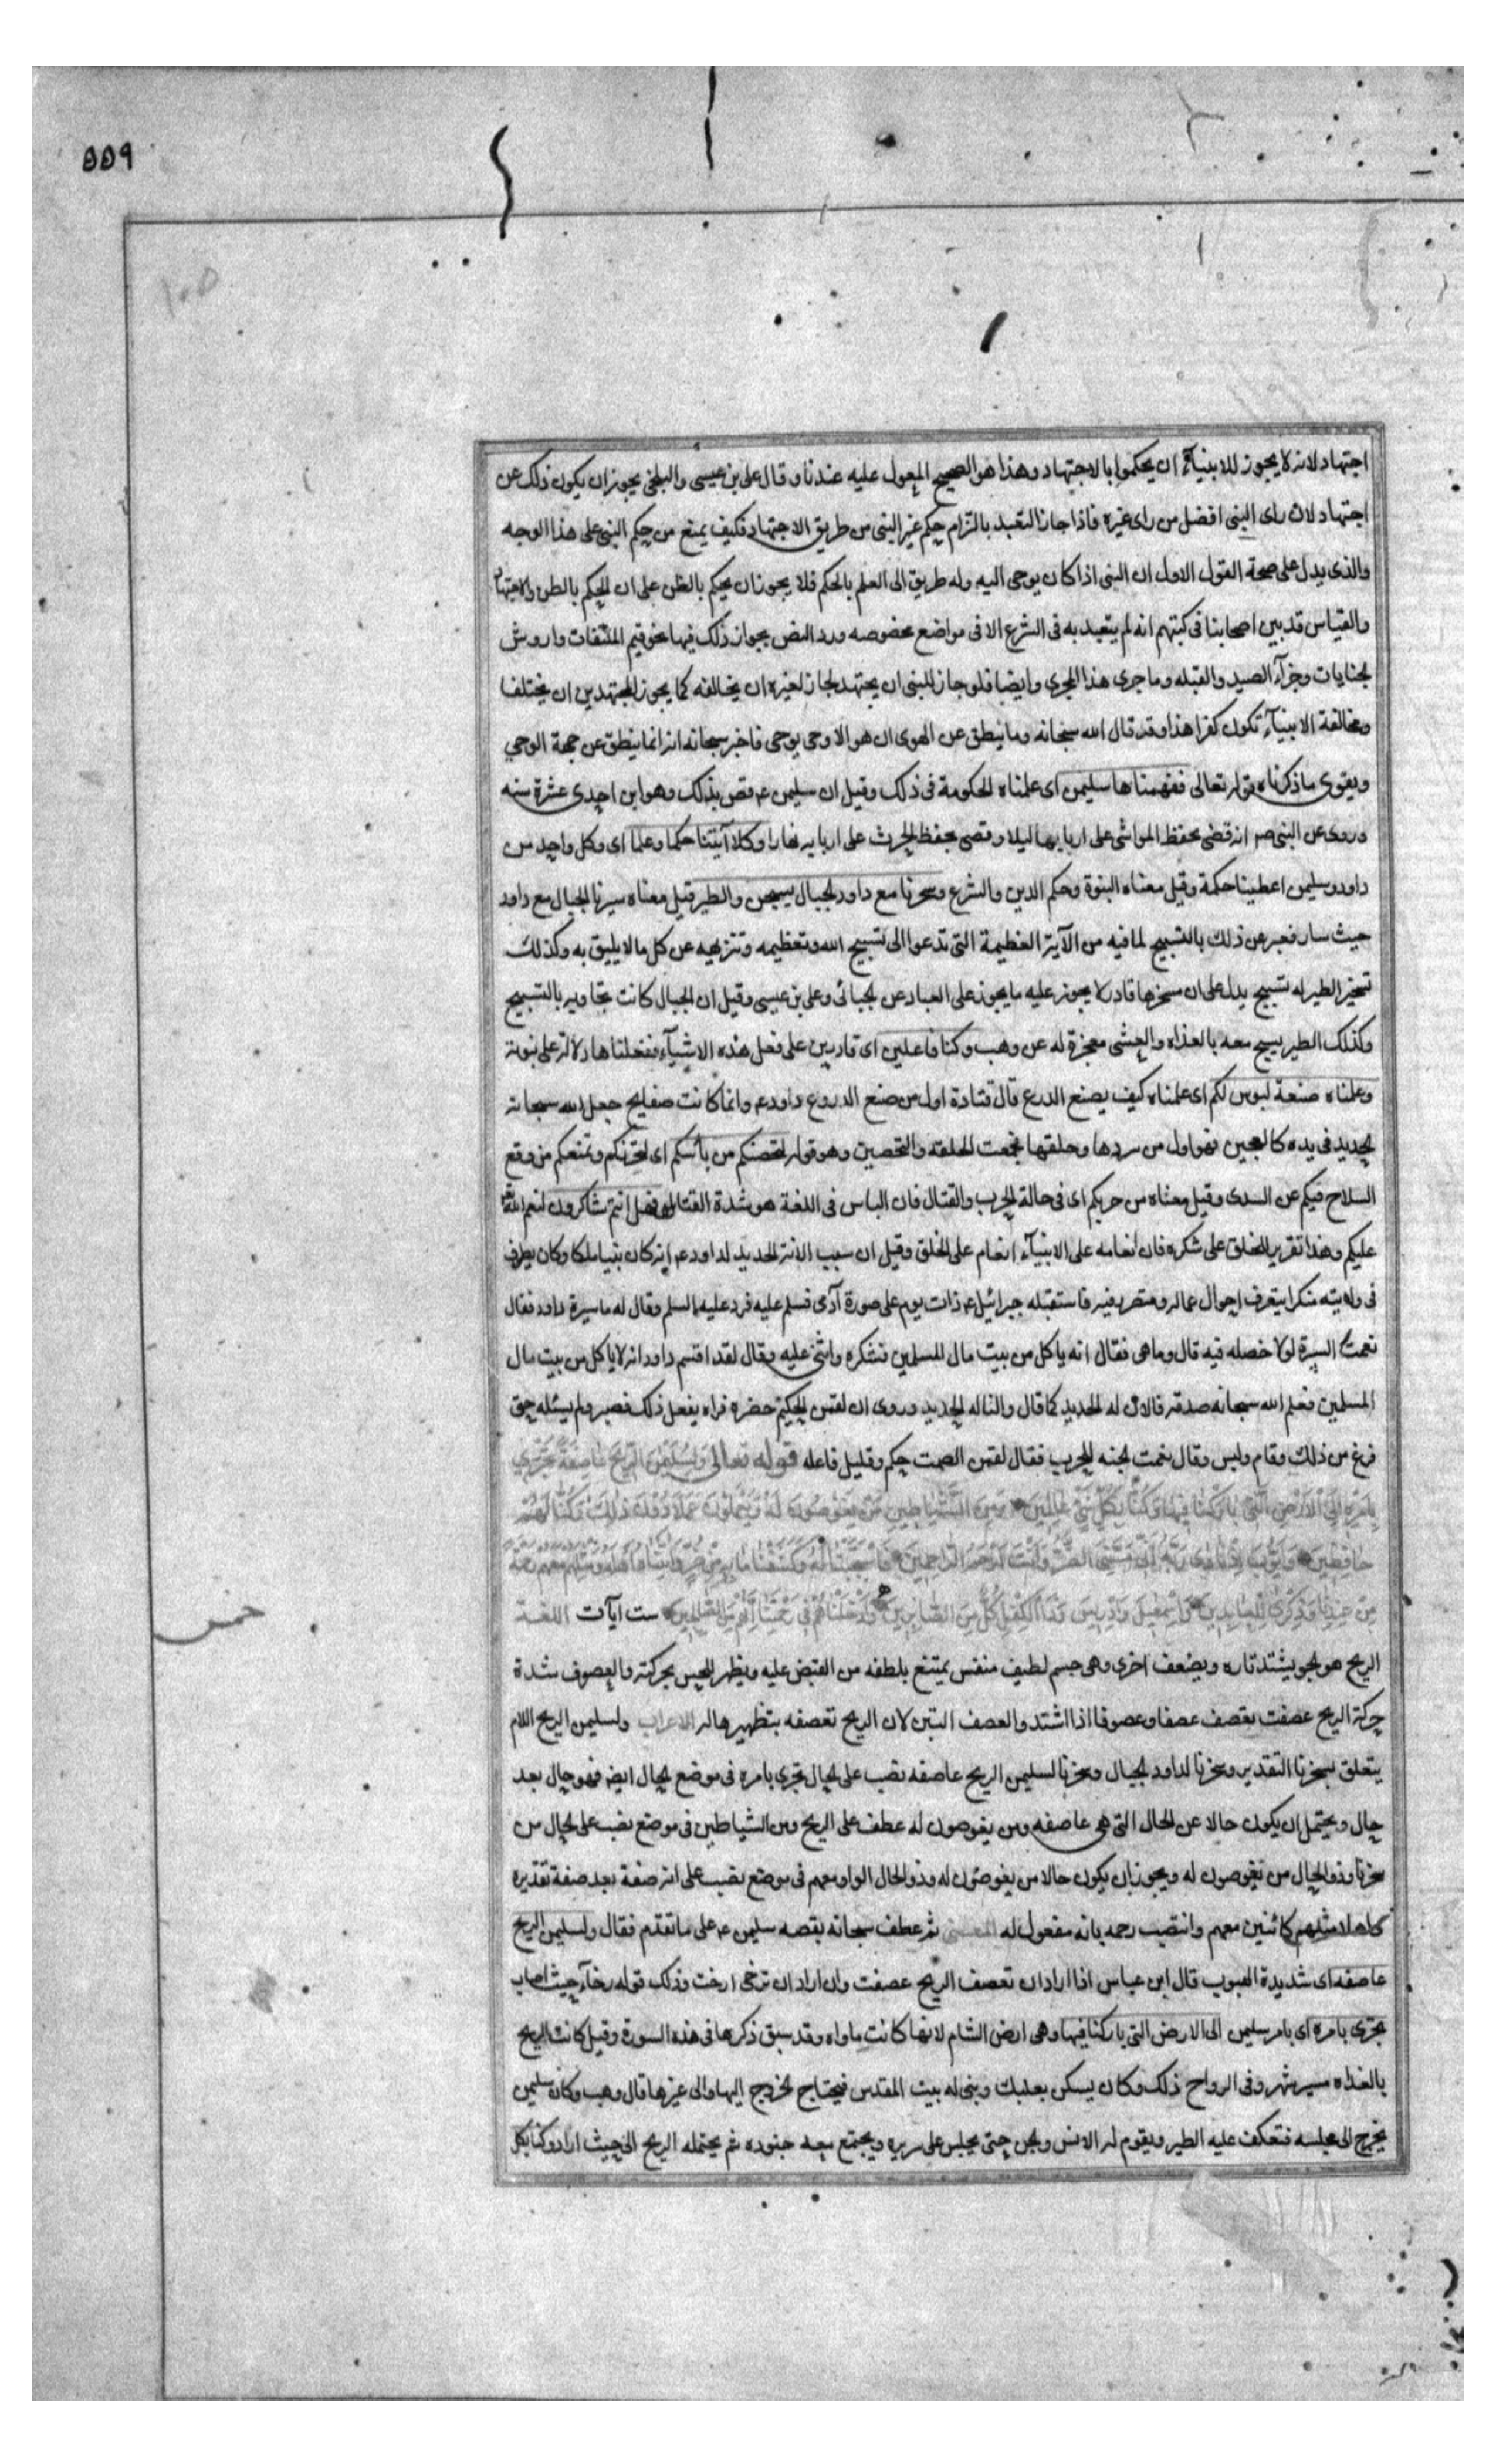 ٥٥٩
اجتهاد لانه لا يجوز للانبيآء ان يحكموا بالاجتهاد وهذا هو الصحيح المعول عليه عندنا وقال على بن عيسى والبلخى يجوز ان يكون ذلك عن
اجتهاد لان راى النبى افضل من راى غيره فاذا جاز التعبد بالتزام حكم غير النبى من طريق الاجتهاد فكيف يمنع من حكم النبى على هذا الوجه
والذى يدل على صحة القول الاول ان النبى اذا كان يوحى اليه وله طريق الى العلم بالحكم فلا يجوز ان يحكم بالظن على ان الحكم بالظن والاجتهاد
والقياس قد بين اصحابنا فى كتبهم انه لم يتعبد به فى الشرع الا فى مواضع مخصوصه ورد النص بجواز ذلك فيها نحو قيم المتلفات واروش
لجنايات وجزآء الصيد والقبله وما جرى هذا المجرى وايضا فلو جاز للنبى ان يجتهد لجاز لغيره ان يخالفه كما يجوز للمجتهدين ان يختلفا
ومخالفة الانبيآء تكون كفرا هذا وقد قال الله سبحانه وما ينطق عن الهوى ان هو الا وحى يوحى فاخبر سبحانه انه انما ينطق عن جهة الوحي
ويقوى ما ذكرناه قوله تعالى ففهمناها سليمن اى علمناه الحكومة فى ذلك وقيل ان سليمن ع قضى بذلك وهو ابن احدى عشرة سنه
وروى عن النبى ص انه قضى بحفظ المواشى على اربابها ليلا وقضى بحفظ الحرث على اربابه نهارا وكلا آتينا حكما وعلما اى وكل واحد من
داود وسليمن اعطيناه حكمة وقيل معناه النبوة وحكم الدين والشرع وسخرنا مع داود لجبال يسبحن والطير قيل معناه سيرنا الجبال مع داود
حيث سار فعبر عن ذلك بالتسبيح لما فيه من الآية العظيمة التى تدعوا الى تسبيح الله وتعظيمه وتنزيهه عن كل ما لا يليق به وكذلك
تسخير الطير له تسبيح يدل على ان مسخرها قادر لا يجوز عليه ما يجوز على العباد عن لجبائى وعلى بن عيسى وقيل ان لجبال كانت تجاوبه بالتسبيح
وكذلك الطير يسبح معه بالغداه والعشى معجزة له عن وهب وكنا فاعلين اى قادرين على فعل هذه الاشيآء ففعلناها دلالة على نبوته
وعلمناه صنعة لبوس لكم اى علمناه كيف يصنع الدرع قال قتادة اول من صنع الدروع داود ع وانما كانت صفايح جعل الله سبحانه
لحديد فى يده كالعجين فهو اول من سردها وحلقها فجمعت الخفة والتحصين وهو قوله لتحصنكم من بأسكم اى لتحرزكم وتمنعكم من وقع
السلاح فيكم عن السدى وقيل معناه من حربكم اى فى حالة الحرب والقتال فان الباس فى اللغة هو شدة القتال فهل انتم شاكرون لنعم الله
عليكم وهذا تقرير للخلق على شكره فان انعامه على الانبيآء انعام على الخلق وقيل ان سبب الانة الحديد لداود ع انه كان نبيا ملكا وكان يطوف
فى ولايته متنكرا يتعرف احوال عماله ومتصرفيه فاستقبله جبرائيل ع ذات يوم على صورة آدمى فسلم عليه فرد عليه السلم وقال له ما سيرة داود فقال
نعمت السيرة لولا خصله فيه قال وما هى فقال انه ياكل من بيت مال المسلمين فشكره واثنى عليه وقال لقد اقسم داود انه لا ياكل من بيت مال
المسلمين فعلم الله سبحانه صدقه فالان له الحديد كما قال والنا له الحديد وروى ان لقمن الحكيم حضره فراه يفعل ذلك فصبر ولم يسئله حتى
فرغ من ذلك وقام ولبس وقال نعمت لجنه للحرب فقال لقمن الصمت حكم وقليل فاعله قوله تعالى وَلِسُلَيْمٰنَ الرّيحَ عاصِفَةً تَجْري
بِاَمْرِه اِلَى الْاَرْضِ الَّتي بارَكْنا فيها وَكُنّا بِكُلِّ شَيْءٍ عالِمينَ وَمِنَ الشَّياطينِ مَنْ يَغُوصُونَ لَهُ وَيَعْمَلُونَ عَمَلاً دُونَ ذلِكَ وَكُنّا لَهُمْ
حافِظينَ وَاَيُّوبَ اِذْ نادى رَبَّهُ اَنّى مَسَّنِىَ الضُّرُّ وَاَنْتَ اَرْحَمُ الرّاحِمينَ فَاسْتَجَبْنا لَهُ فَكَشَفْنا ما بِه مِنْ ضُرٍّ وَآتَيْناهُ اَهْلَهُ وَمِثْلَهُمْ مَعَهُمْ رَحْمَةً
مِنْ عِنْدِنا وَذِكْرى لِلْعابِدينَ وَاِسْمعيلَ وَاِدْريسَ وَذَا الْكِفْلِ كُلٌّ مِنَ الصّابِرينَ وَاَدْخَلْناهُمْ فى رَحْمَتِنا اِنَّهُمْ مِنَ الصّالِحينَ ست آيات اللغة
خمس
الريح هو لجو يشتد تاره ويضعف اخرى وهى جسم لطيف منفس يمتنع بلطفه من القبض عليه ويظهر للحس بحركته والعصوف شدة
حركة الريح عصفت تعصف عصفا وعصوفا اذا اشتد والعصف التبن لان الريح تعصفه بتطهيرها له الاعراب ولسليمن الريح اللام
يتعلق بسخرنا التقدير وسخرنا لداود لجبال وسخرنا لسليمن الريح عاصفه نصب على لحال تجرى بامره فى موضع لحال ايض فهو حال بعد
حال ويحتمل ان يكون حالا عن الحال التى هى عاصفه ومن يغوصون له عطف على الريح ومن الشياطين فى موضع نصب على لحال من
سخرنا وذو الحال من يغوصون له ويجوز ان يكون حالا من يغوصون له وذو الحال الواو معهم فى موضع نصب على انه صفة بعد صفة تقديره
كاهلا مثلهم كائنين معهم وانتصب رحمه بانه مفعول له المعنى ثم عطف سبحانه بقصه سليمن ع على ما تقدم فقال ولسليمن الريح
عاصفه اى شديدة الهبوب قال ابن عباس اذا اراد ان تعصف الريح عصفت وان اراد ان ترخى ارخت وذلك قوله رخآء حيث اصاب
تجرى بامره اى بامر سليمن الى الارض التى باركنا فيها وهى ارض الشام لانها كانت ماواه وقد سبق ذكرها فى هذه السورة وقيل كانت الريح
بالغداه مسير شهر وفى الرواح ذلك وكان يسكن بعلبك وبنى له بيت المقدس فيحتاج لخروج اليها والى غيرها قال وهب وكان سليمن
يخرج الى مجلسه فتعكف عليه الطير ويقوم له الانس ولجن حتى يجلس على سريره ويجتمع معه جنوده ثم يحتمله الريح الى حيث اراد وكنا بكل